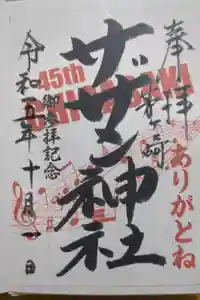 奉拝
茅ヶ崎
ありがとね
サザン神社
45th
CHIGASAKI
御参拝記念
令和五年十月一日